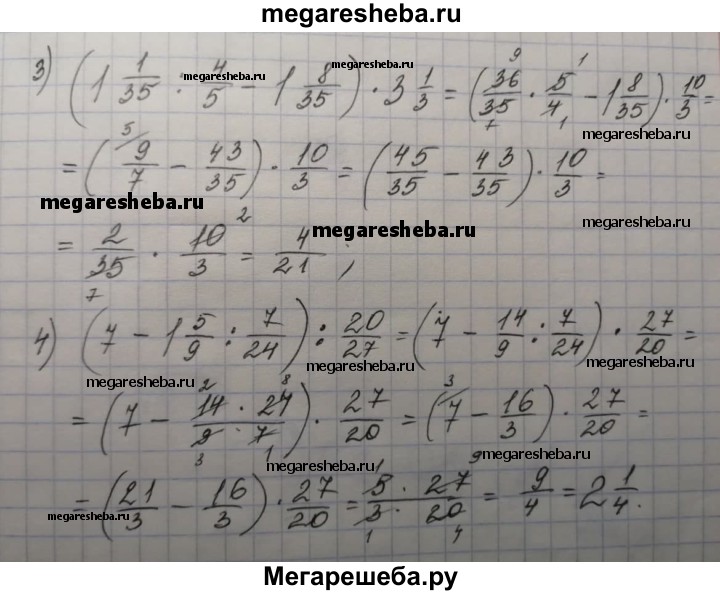 megaresheba.ru
3) (1 1/35 : 4/5 − 1 8/35) · 3 1/3 = (36/35 · 5/4 − 1 8/35) · 10/3 =
= (9/7 − 43/35) · 10/3 = (45/35 − 43/35) · 10/3 =
= 2/35 · 10/3 = 4/21 ;
4) (7 − 1 5/9 : 7/24) : 20/27 = (7 − 14/9 : 7/24) · 27/20 =
= (7 − 14 · 24/9 · 7) · 27/20 = (7 − 16/3) · 27/20 =
= (21/3 − 16/3) · 27/20 = 5 · 27/3 · 20 = 9/4 = 2 1/4.
megaresheba.ru
megaresheba.ru
megaresheba.ru
megaresheba.ru
megaresheba.ru
megaresheba.ru
megaresheba.ru
megaresheba.ru
megaresheba.ru
megaresheba.ru
megaresheba.ru
Мегарешеба.ру